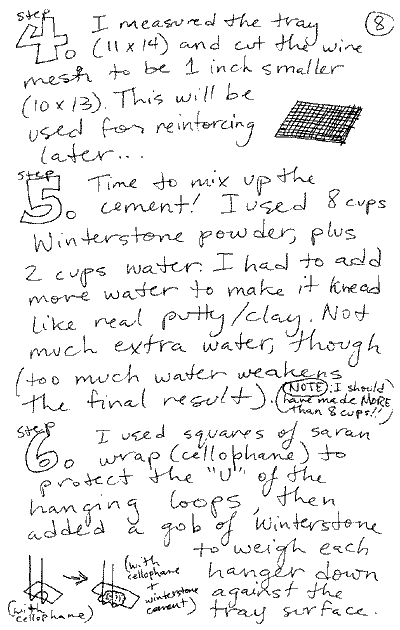 step
4. I measured the tray
8
(11 x 14) and cut the wire
mesh to be 1 inch smaller
(10 x 13). This will be
used for reintorcing
later...
step
5. Time to mix up the
cement! I used 8 cups
Winterstone powder, plus
2 cups water. I had to add
more water to make it knead
like real putty/clay. Not
much extra water, though
(too much water weakens
the final result).
(NOTE: I should
have made MORE
than 8 cups!!)
step
6. I used squares of saran
wrap (cellophane) to
protect the "U" of the
hanging loops, then
added a gob of Winterstone
to weigh each
hanger down
against the
tray surface.
(with
cellophane)
(with
cellophane
+
winterstone
cement)